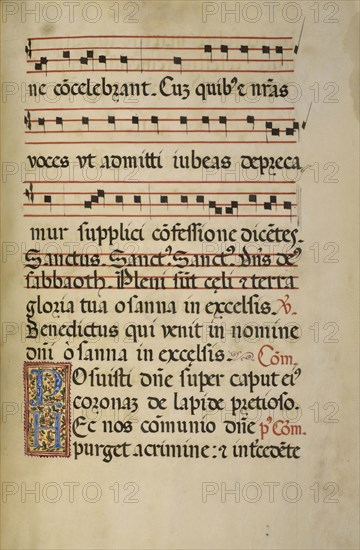 ne cõcelebrant. Cuz quib⁹ ⁊ nr̃as
voces vt admitti iubeas depreca
mur supplici cõfessione dicẽtes.
Sanctus. Sanct⁹. Sanct⁹. Dñs de⁹
sabbaoth. Pleni sũt cęli ⁊ terra
gloria tua osanna in excelsis. ℣.
Benedictus qui venit in nomine
dñi osanna in excelsis. Cõm.
Posuisti dñe super caput ei⁹
coronaz de lapide pretioso.
Hec nos cõmunio dñe p⁹ Cõm.
purget a crimine: ⁊ int̃cedẽte
PHOTO12